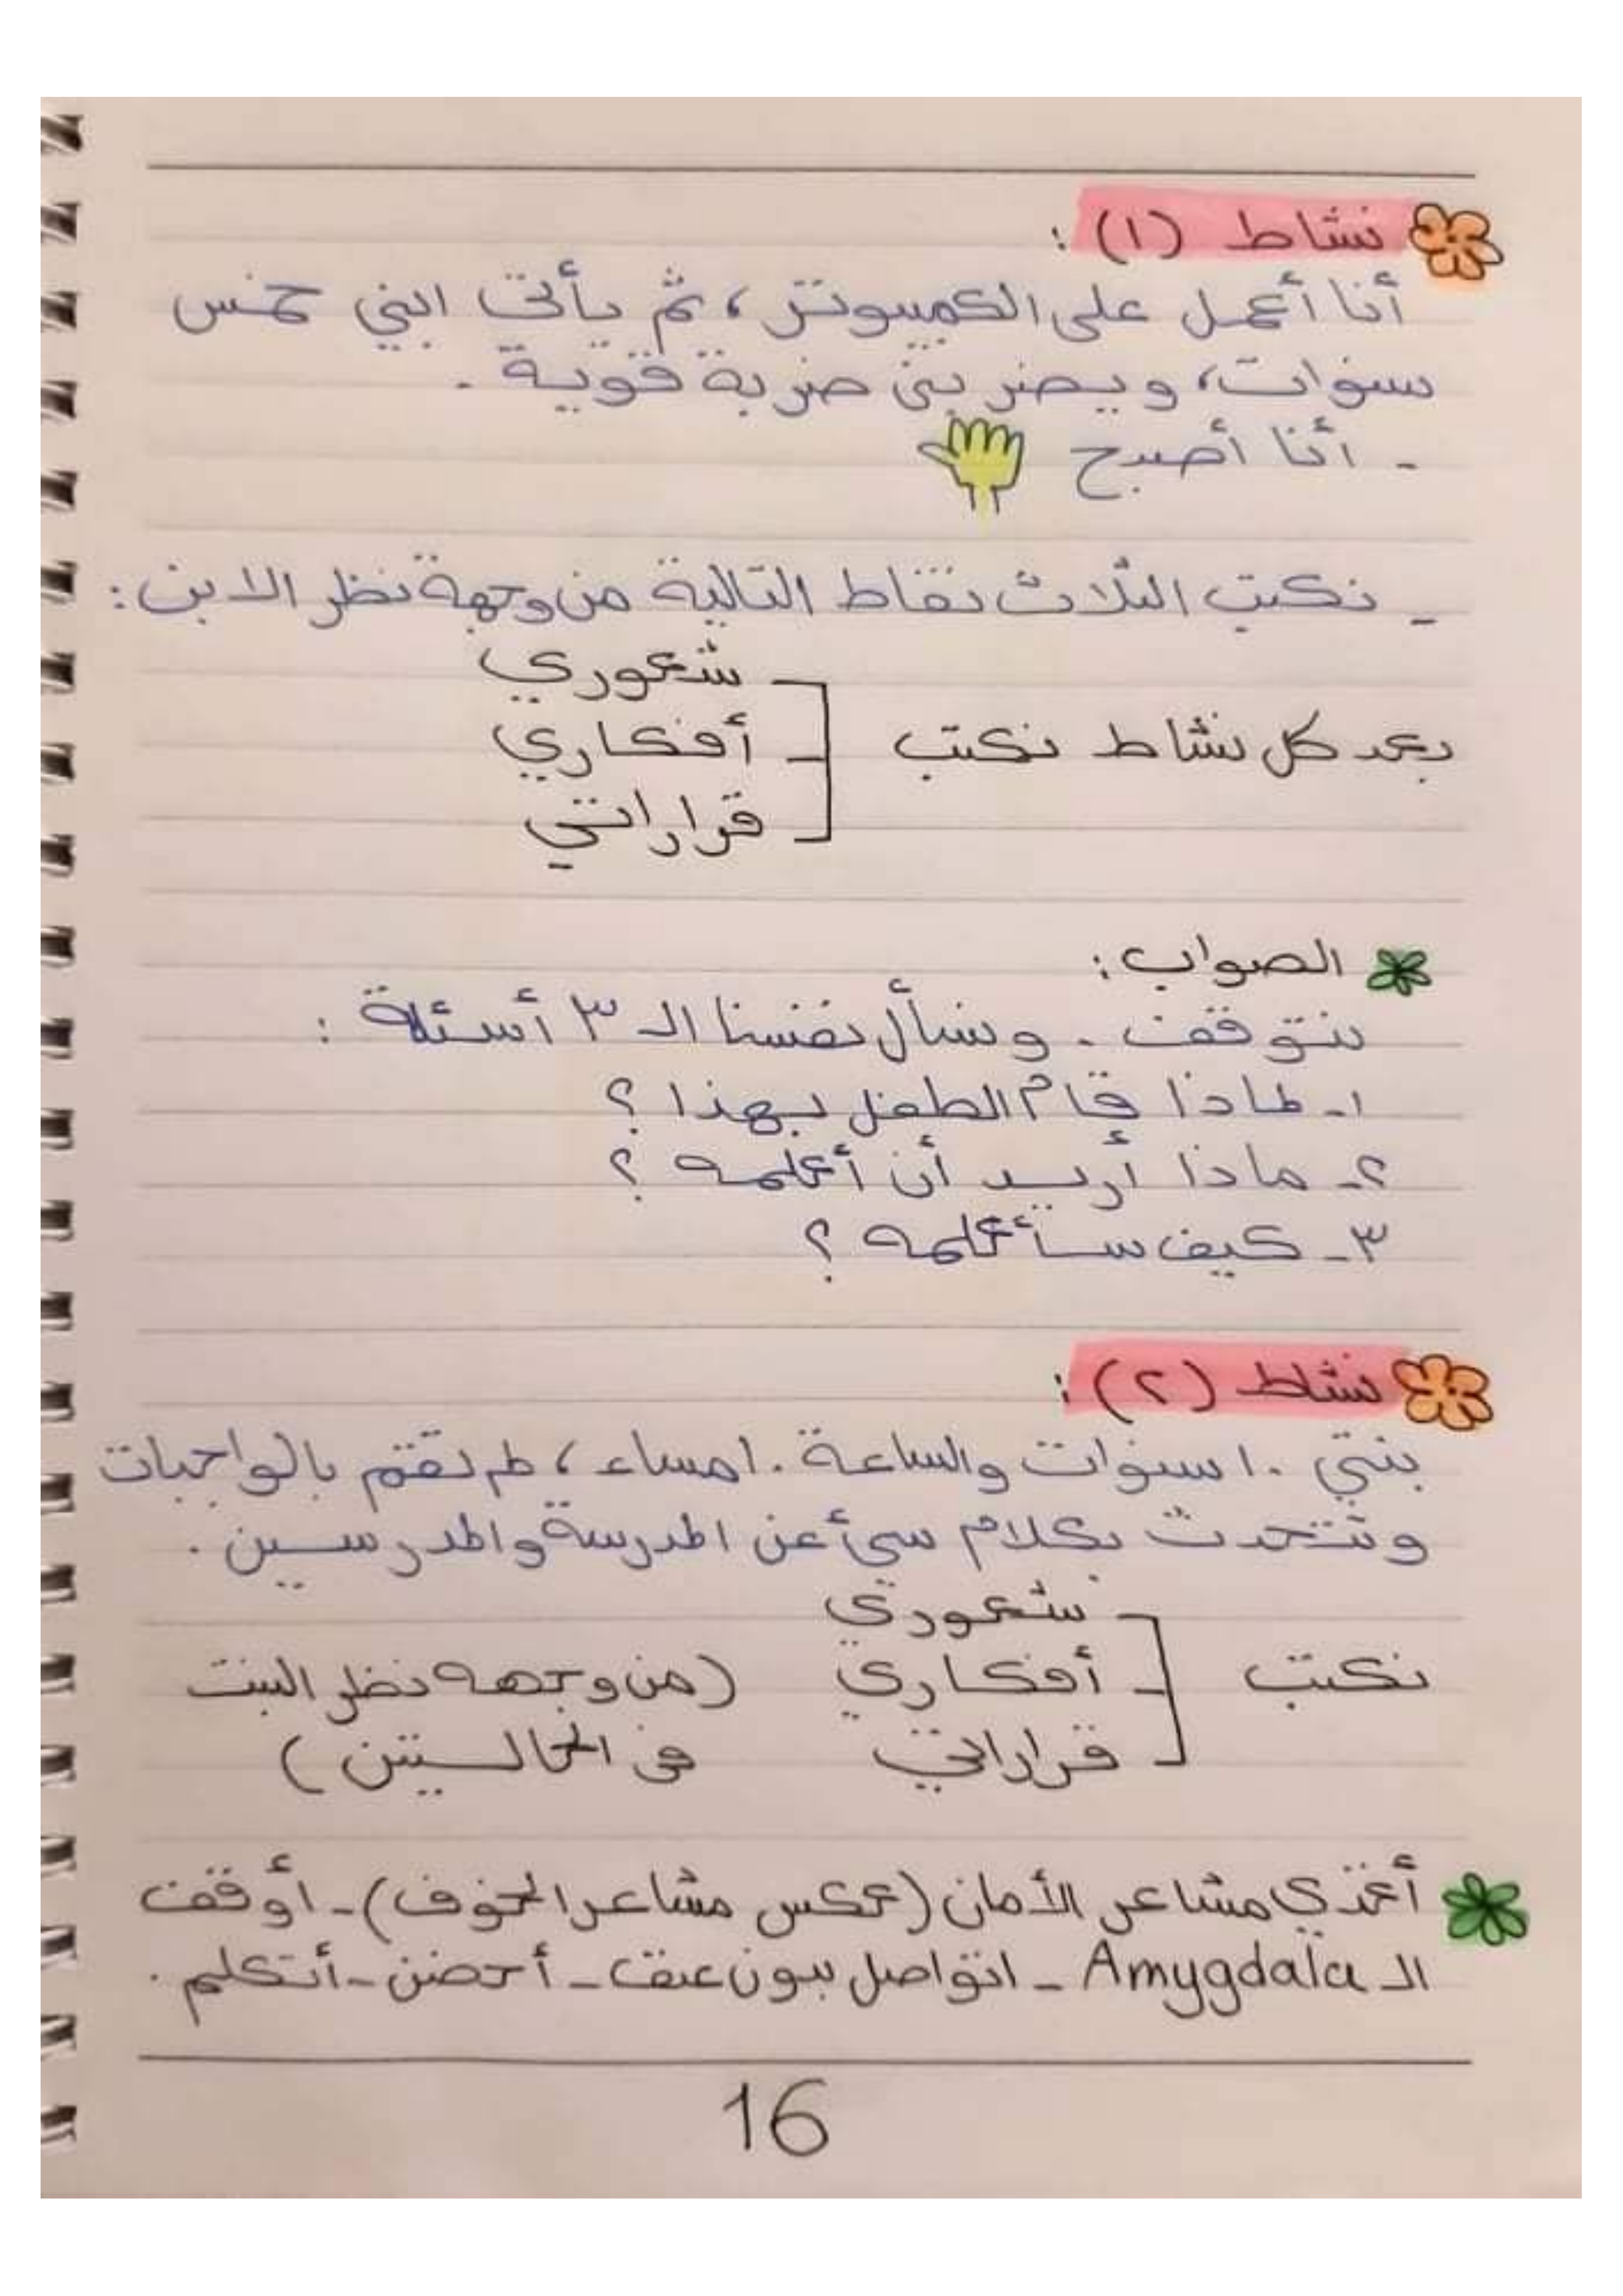 نشاط (١) :
أنا أعمل على الكمبيوتر، ثم يأتي ابني خمس
سنوات، ويضربني ضربة قوية .
- أنا أصبح
- نكتب الثلاث نقاط التالية من وجهة نظر الابن :
بعد كل نشاط نكتب
شعوري
أفكاري
قراراتي
الصواب :
نتوقف . ونسأل نفسنا الـ ٣ أسئلة :
١- لماذا قام الطفل بهذا ؟
٢- ماذا أريد أن أعلمه ؟
٣- كيف سأعلمه ؟
نشاط (٢) :
بنتي ١٠ سنوات والساعة ١٠ مساء، لم تقم بالواجبات
وتتحدث بكلام سيء عن المدرسة والمدرسين .
نكتب
شعوري
أفكاري (من وجهه نظر البنت
قراراتي في الحالتين )
أغذي مشاعر الأمان (عكس مشاعر الخوف) - أوقف
الـ Amygdala - اتواصل بدون عنف - أحضن - أتكلم .
16